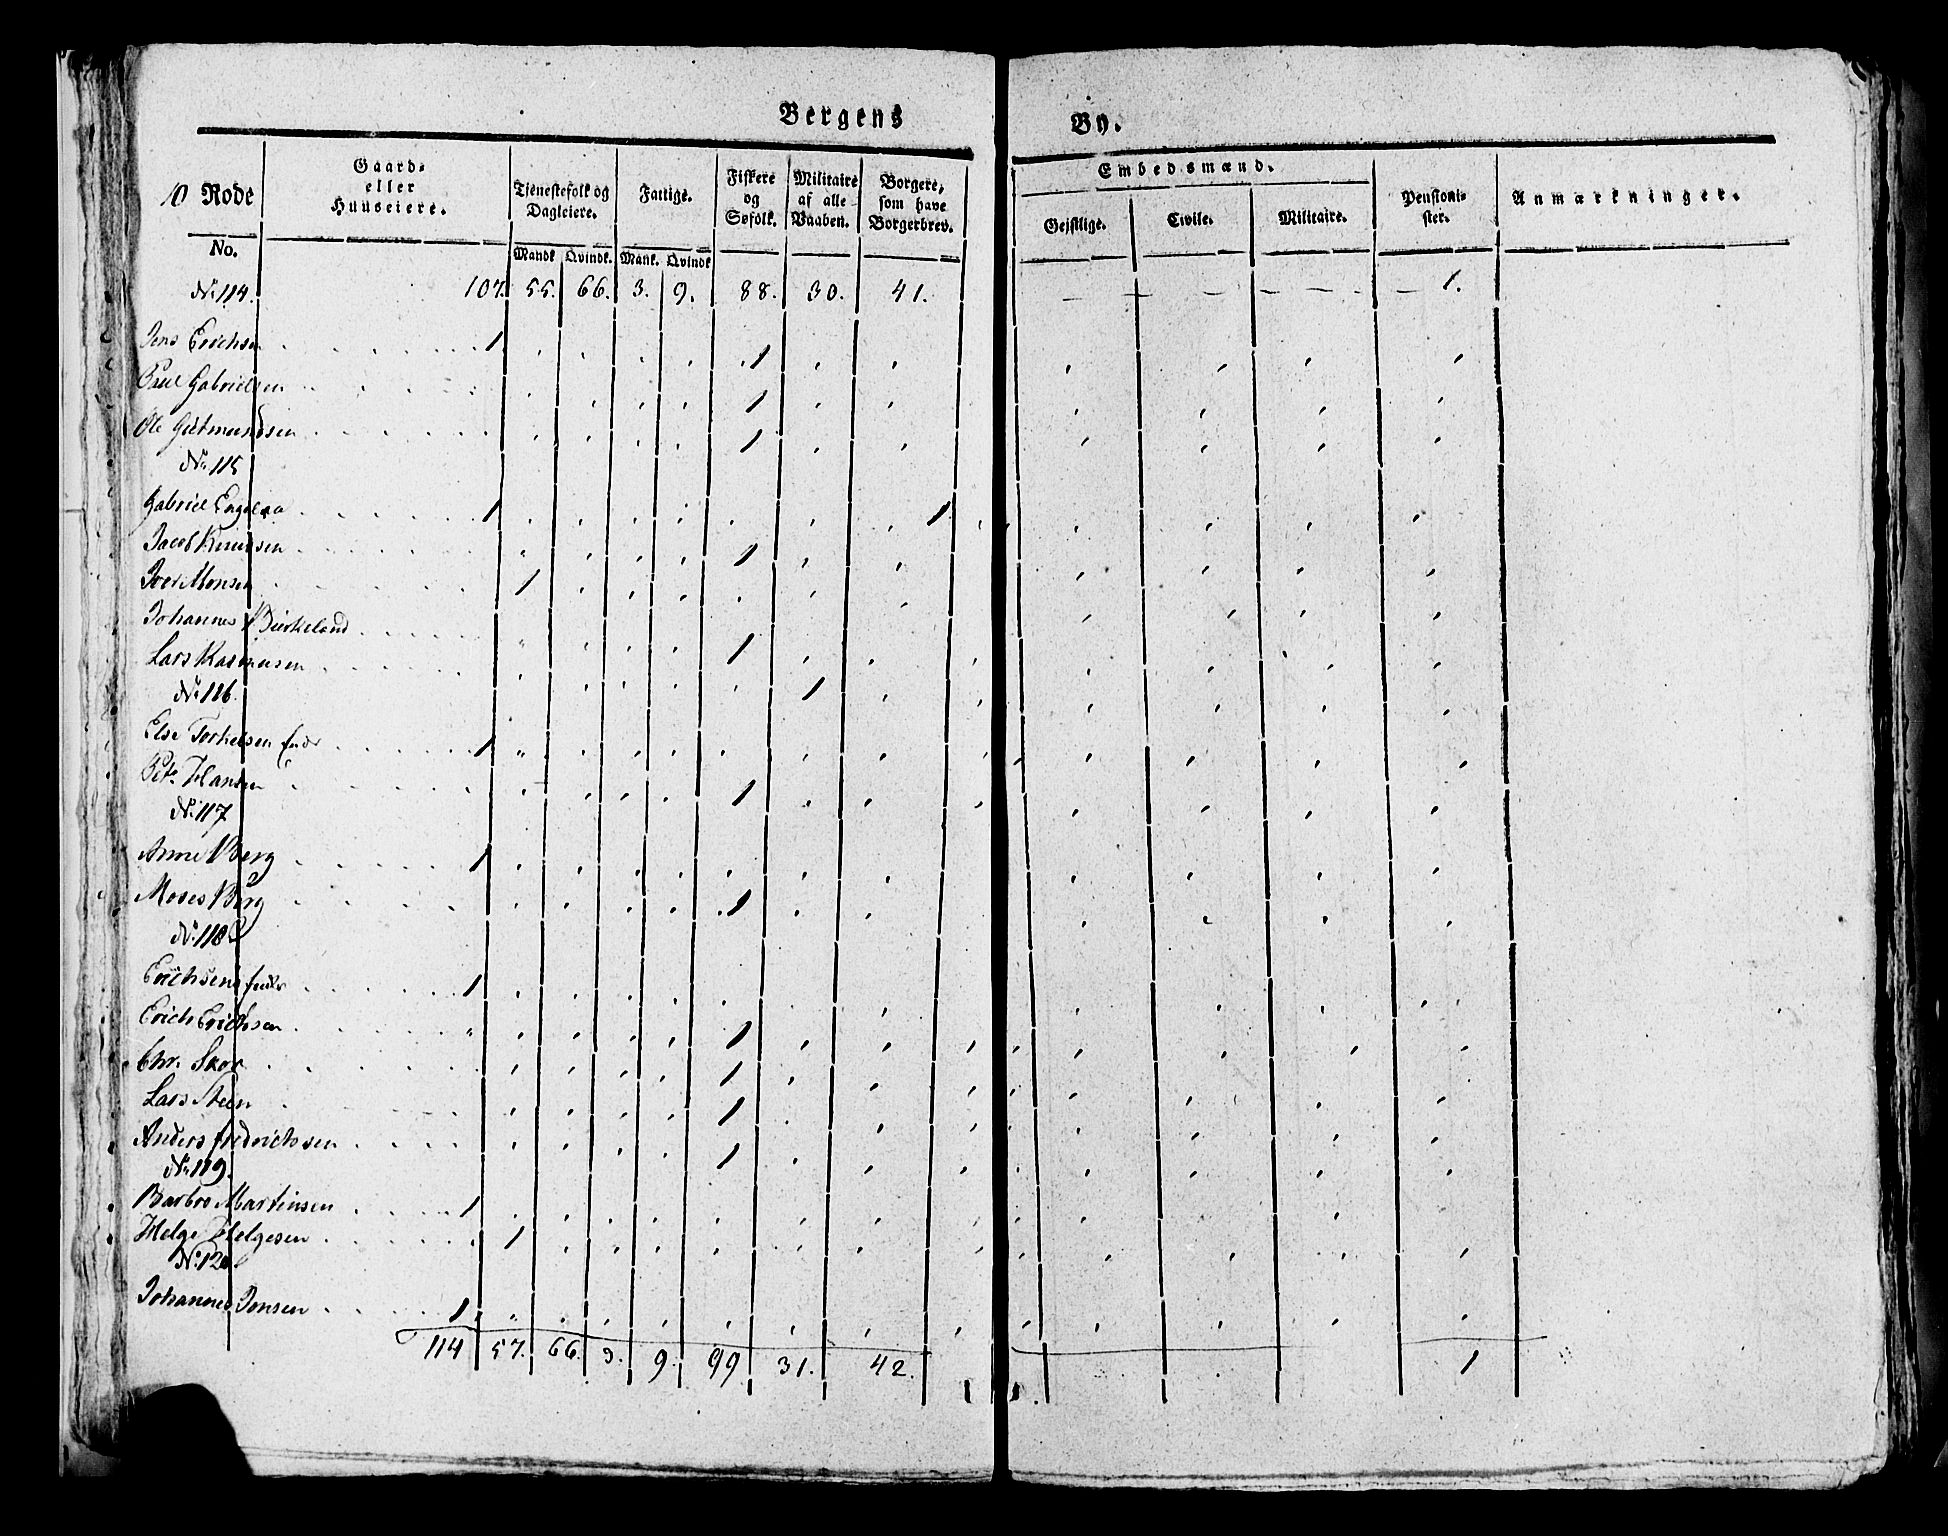 Bergens By.
10 Rode No. Gaard- eller Huuseiere. Tienestefolk og Dagleiere. Mandk. Qvindk. Fattige. Mank. Qvindk. Fiskere og Søfolk. Militaire af alle Vaaben. Borgere, som have Borgerbrev. Embedsmænd. Gejstlige. Civile. Militaire. Pensioni-ster. Anmærkninger.
No. 114. 107. 55. 66. 3. 9. 88. 30. 41. 1.
Jens Erichsen 1 1
Poul Gabrielsen 1
Ole Gutmundsen 1
No. 115
Gabriel 1 1
Jacob Knudsen 1
Iver Monsen 1
Johannes Birkeland 1
Lars Rasmusen 1
No. 116.
Else Torkelsen 1
Petr. Hansen 1
No. 117
Anne Berg 1
Moses Berg 1
No. 118
Erichsens 1
Erich Erichsen 1
Chr. Skor 1
Lars Steen 1
Anders Fredrichsen 1
No. 119.
Barbro Martinsen 1
Helge Helgesen 1
No. 120
Johannes Jonsen 1
114 57. 66. 3. 9. 99 31. 42. 1